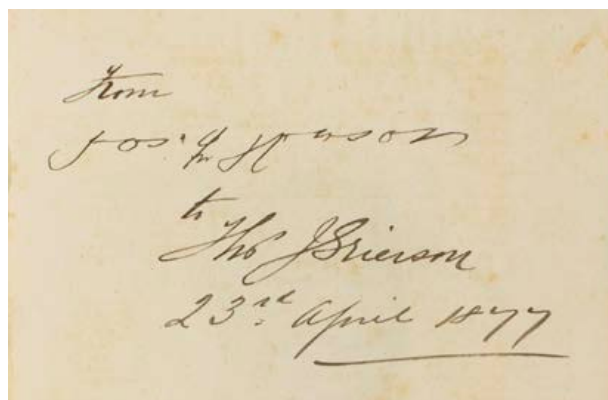 From
Jos. Th
to
Tho J Grierson
23rd April 1877